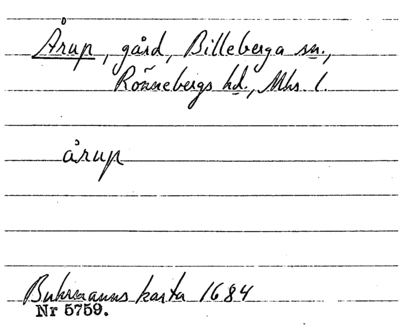 Årup, gård, Billeberga sn.,
Rönnebergs hd., Mhs l.
årup
Buhrmanns karta 1684
Nr 5759.